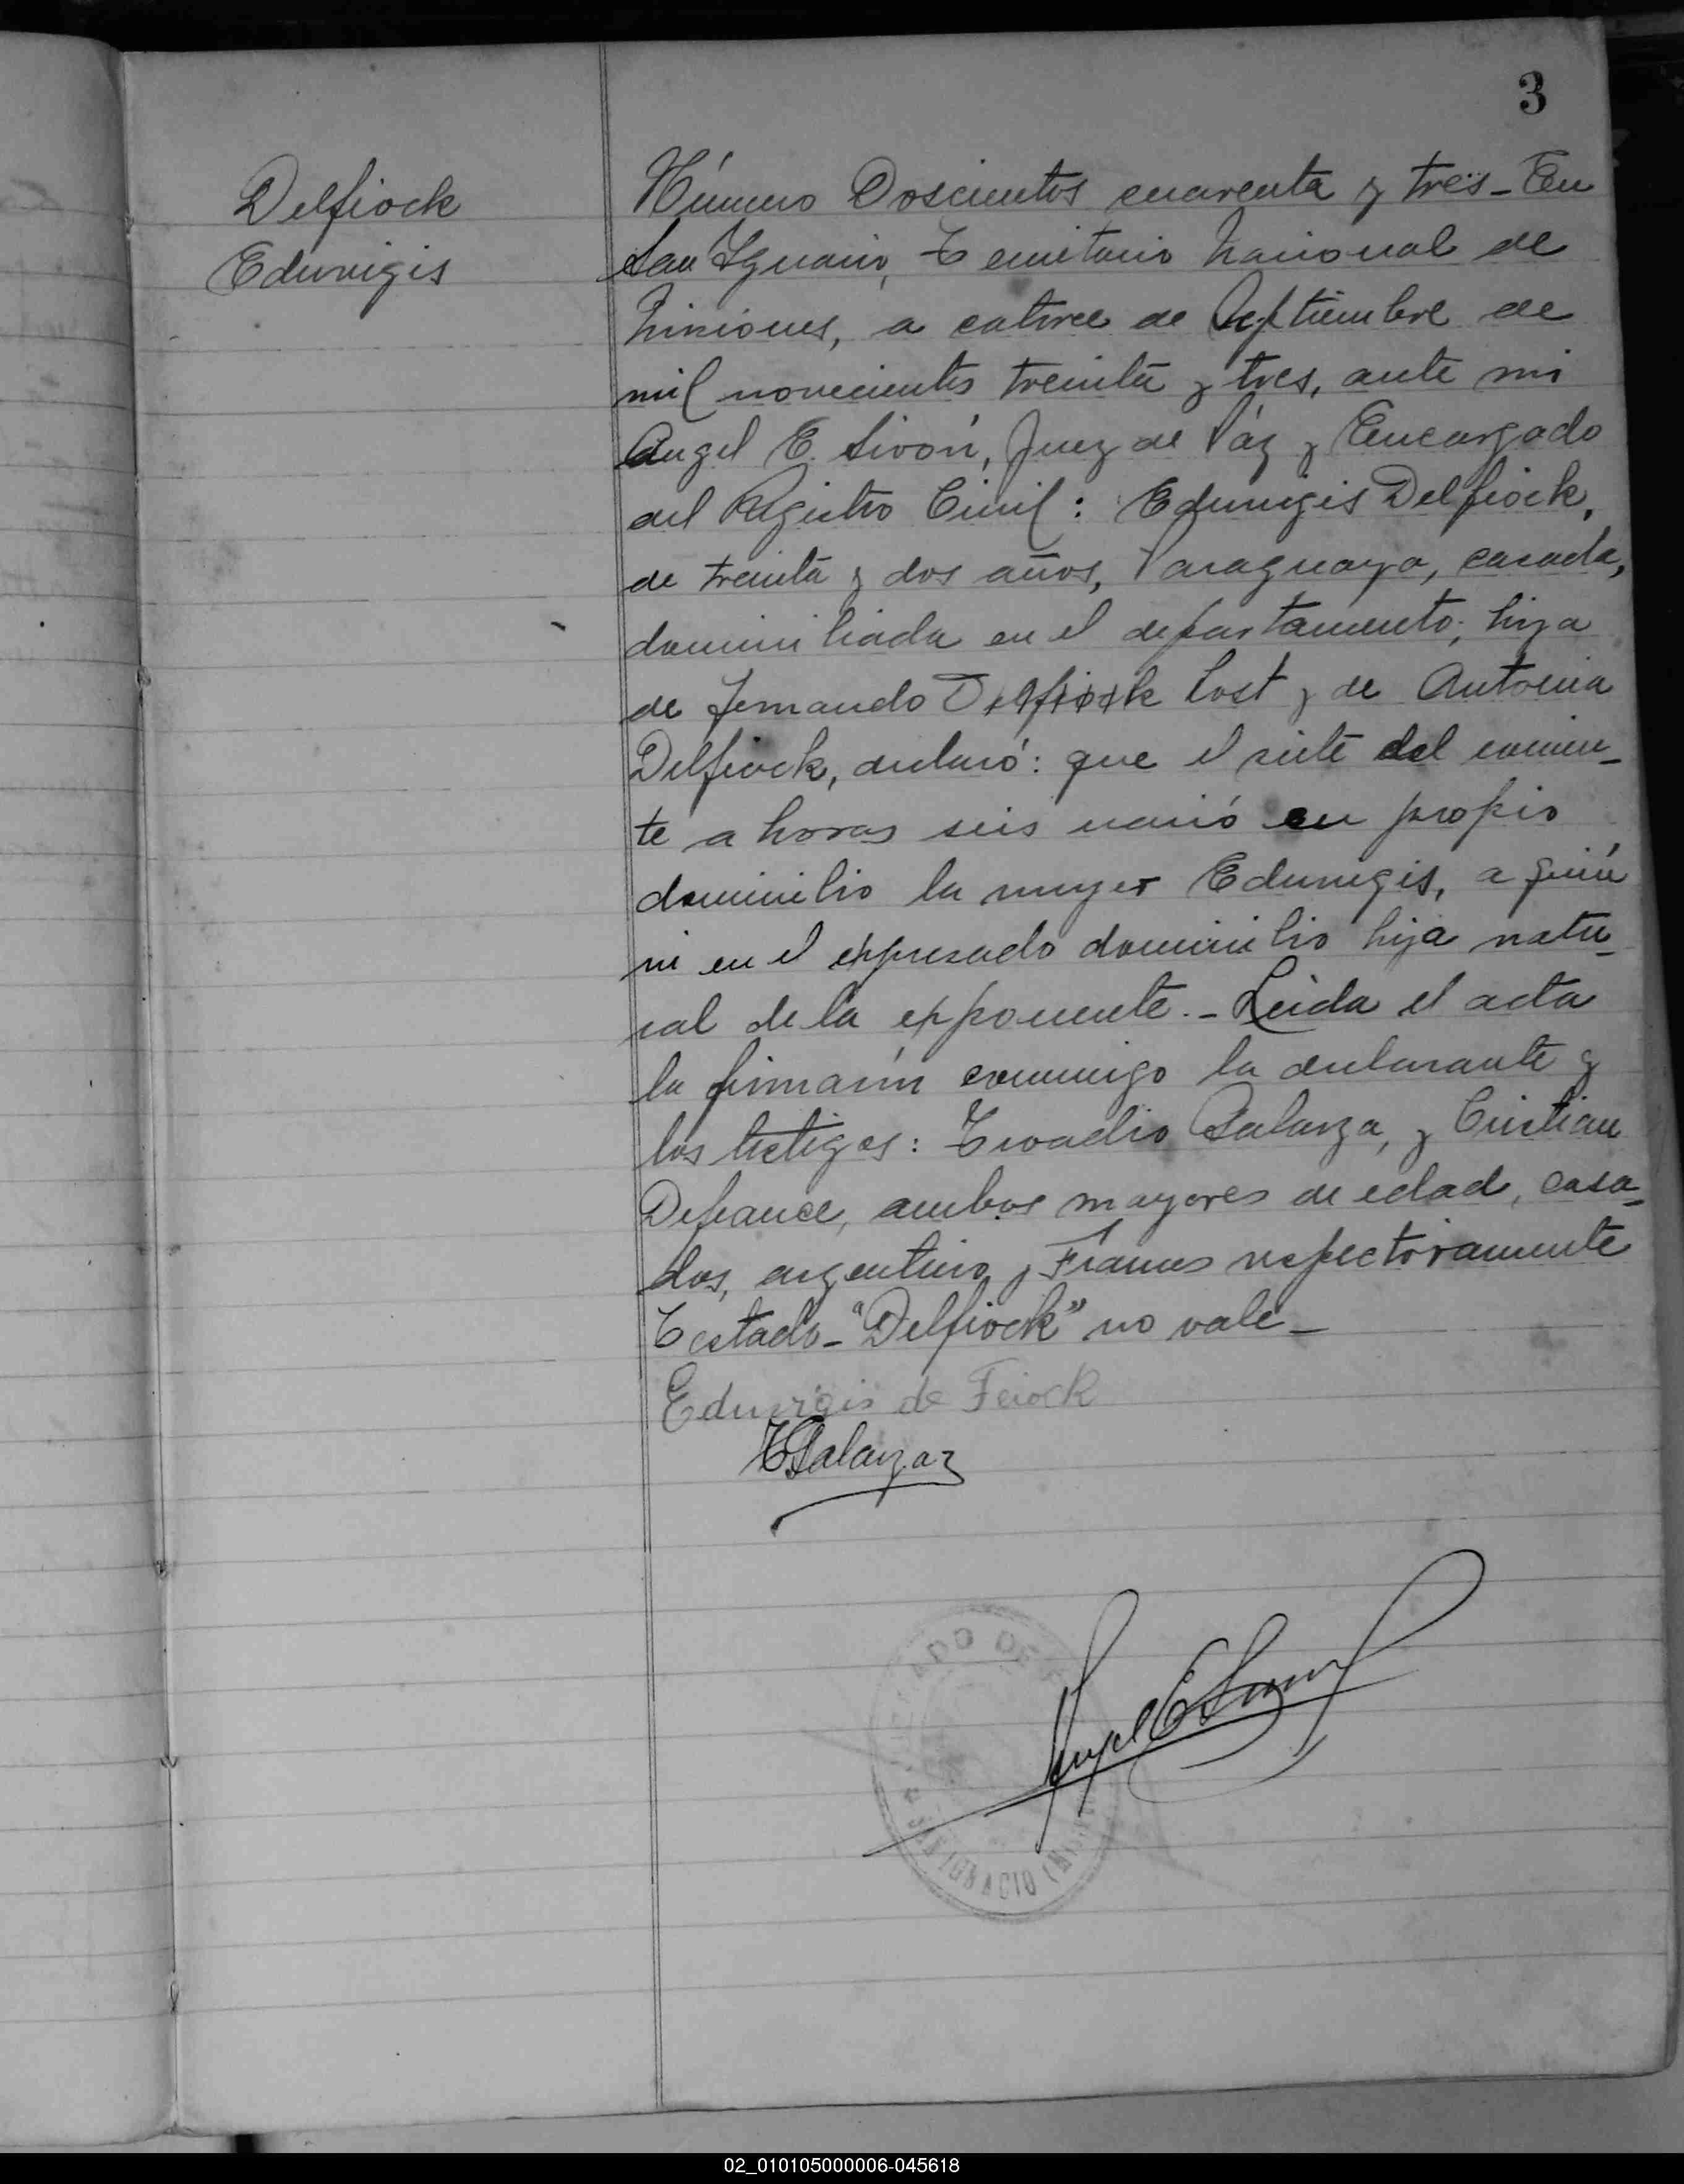 3
Delfiock
Eduvigis
Número Doscientos cuarenta y tres - En
San Ignacio, Territorio Nacional de
Misiones, a catorce de Septiembre de
mil novecientos treinta y tres, ante mi
Angel E. Sivori, Juez de Páz y Encargado
del Registro Civil: Eduvigis Delfiock,
de treinta y dos años, Paraguaya, casada,
domiciliada en el departamento; hija
de Fernando Delfiock Post y de Antonia
Delfiock, declaró: que el siete del corrien-
te a horas seis nació en propio
domicilio la mujer Eduvigis, a quién
vi en el expresado domicilio hija natu-
ral de la exponente. - Leida el acta
la firmarón conmigo la declarante y
los testigos: Salazar, y Cristian
Defrance, ambos mayores de edad, casa-
dos, argentino y Francés respectivamente
Testado - "Delfiock" no vale -
Eduvigis de Feiock
Salazar
Angel E Sivori
ADO DE
SAN IGNACIO (Mis
02_010105000006-045618